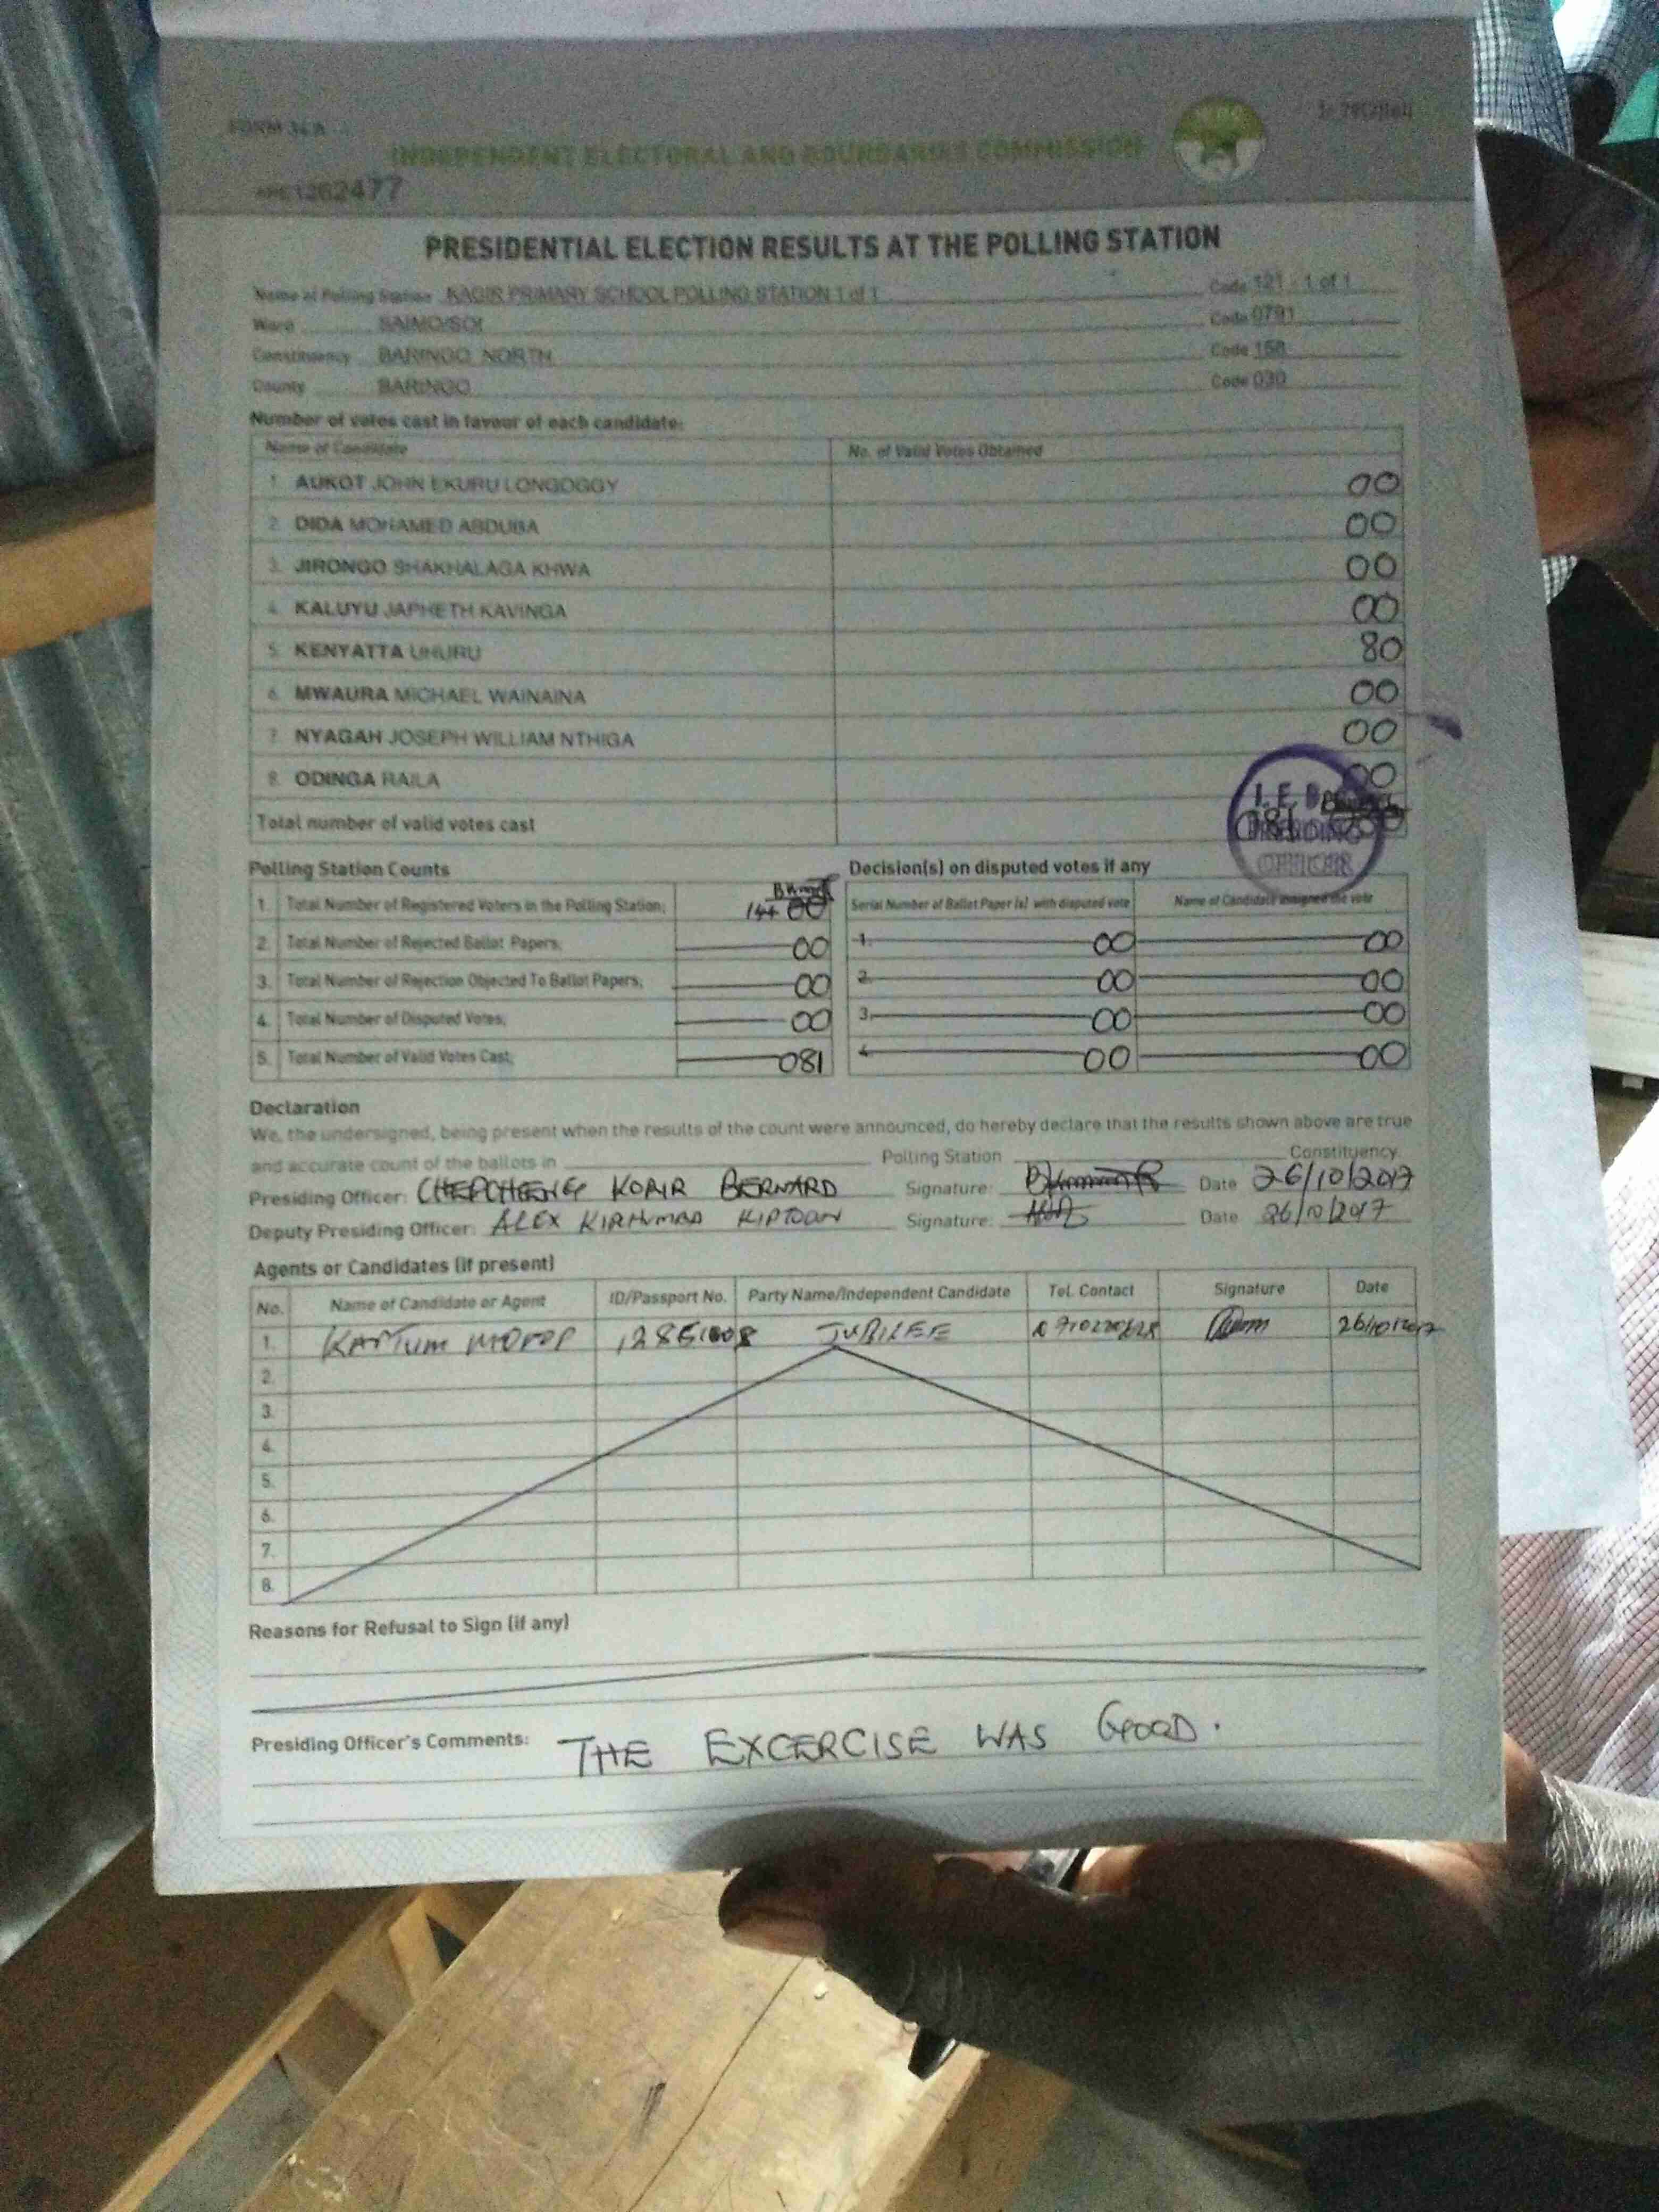 FORM 34A
INDEPENDENT ELECTORAL AND BOUNDARIES COMMISSION
1262477
PRESIDENTIAL ELECTION RESULTS AT THE POLLING STATION
Name of Polling Station KAGIR PRIMARY SCHOOL POLLING STATION 1 of 1 Code 121 - 1 of 1
Ward SAIMO/SOI Code 0791
Constituency BARINGO NORTH Code 158
County BARINGO Code 030
Number of votes cast in favour of each candidate:
Name of Candidate No. of Valid Votes Obtained
1. AUKOT JOHN EKURU LONGOGGY 00
2. DIDA MOHAMED ABDUBA 00
3. JIRONGO SHAKHALAGA KHWA 00
4. KALUYU JAPHETH KAVINGA 00
5. KENYATTA UHURU 80
6. MWAURA MICHAEL WAINAINA 00
7. NYAGAH JOSEPH WILLIAM NTHIGA 00
8. ODINGA RAILA 00
Total number of valid votes cast 081
I.E.B
PRESIDING
OFFICER
Polling Station Counts Decision(s) on disputed votes if any
1. Total Number of Registered Voters in the Polling Station; 144 Serial Number of Ballot Paper (s) with disputed vote Name of Candidate assigned the vote
2. Total Number of Rejected Ballot Papers; 00 1. 00 00
3. Total Number of Rejection Objected To Ballot Papers; 00 2. 00 00
4. Total Number of Disputed Votes; 00 3. 00 00
5. Total Number of Valid Votes Cast; 081 4 00 00
Declaration
We, the undersigned, being present when the results of the count were announced, do hereby declare that the results shown above are true
and accurate count of the ballots in Polling Station Constituency.
Presiding Officer: CHEPCHIENG KORIR BERNARD Signature: Date 26/10/2017
Deputy Presiding Officer: ALEX Signature: Date 26/10/2017
Agents or Candidates (if present)
No. Name of Candidate or Agent ID/Passport No. Party Name/Independent Candidate Tel. Contact Signature Date
1. JUBILEE 26/10/2017
2.
3.
4.
5.
6.
7.
8.
Reasons for Refusal to Sign (if any)
Presiding Officer's Comments: THE EXCERCISE WAS GOOD.